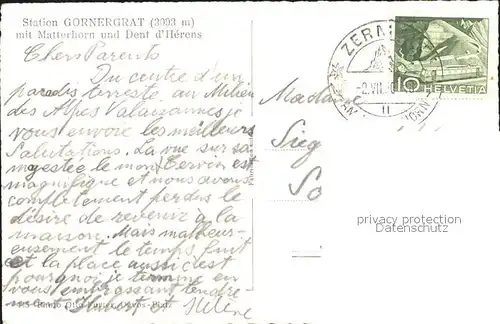 Station GORNERGRAT (3093 m)
mit Matterhorn und Dent d'Hérens
Chers Parents
Du centre d'un
paradis terreste au Milieu
des Alpes Valaisannes je
vous envoie les meilleurs
Salutations. La vue sur sa
majestée le mont Cervin est
magnifique et nous avons
complètement perdus le
désire de revenir à la
maison. Mais malheur-
eusement le temps fuit
et la place aussi c'est
pourquoi je termine en
vous embrossant tendre-
ment Hélène
Madam
Sieg
So
ZERMATT
VII
HELVETIA
10
II
privacy protection
Datenschutz